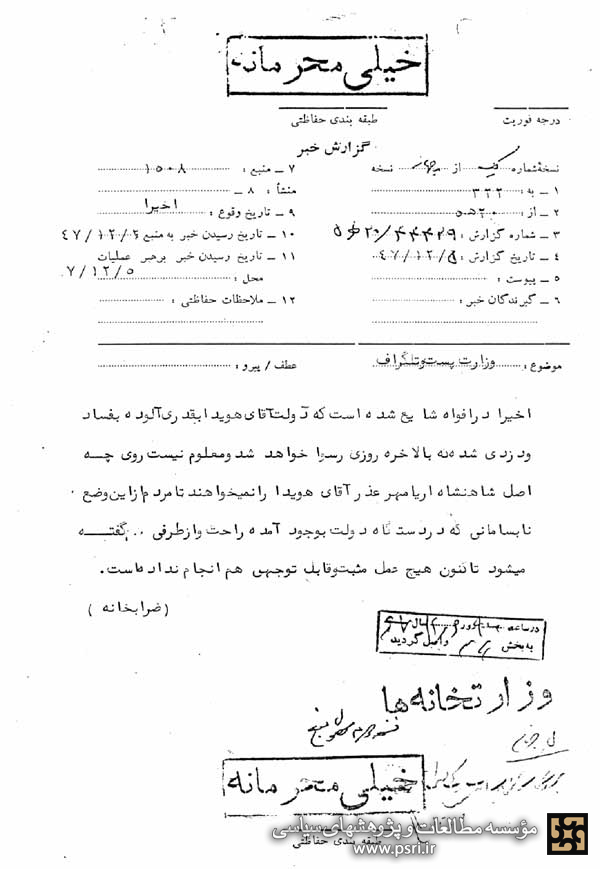 خیلی محرمانه
درجه فوریت
طبقه بندی حفاظتی
گزارش خبر
نسخهٔ شماره یک از چهار نسخه
۱ – به : ۳۲۲
۲ – از : ۵ه۲۰
۳ – شماره گزارش : ۲۰/۴۴۴۲۹ه۵
۴ – تاریخ گزارش : ۴۷/۱۲/۵
۵ – پیوست :
۶ – گیرندگان خبر :
۷ – منبع : ۱۵۰۸
۸ – منشأ :
۹ – تاریخ وقوع : اخیرا
۱۰ – تاریخ رسیدن خبر به منبع ۴۷/۱۲/۲
۱۱ – تاریخ رسیدن خبر برهبر عملیات
محل : ۷/۱۲/۵
۱۲ – ملاحظات حفاظتی :
موضوع : وزارت پست و تلگراف
عطف / پیرو :
اخیرا درافواه شایع شده است که دولت آقای هویدا بقدری آلوده بفساد
ودزدی شده که بالاخره روزی رسوا خواهد شد ومعلوم نیست روی چه
اصل شاهنشاه اریامهر عذر آقای هویدا را نمیخواهند تا مردم از این وضع
نابسامانی که در دستگاه دولت بوجود آمده راحت واز طرفی .. گفته
میشود تاکنون هیچ عمل مثبت وقابل توجهی هم انجام نداده است.
( ضرابخانه )
در ساعه روز سال ۴۷
به بخش واصل گردید
وزارتخانه ها
خیلی محرمانه
طبقه بندی حفاظتی
مؤسسه مطالعات و پژوهشهای سیاسی
www.psri.ir